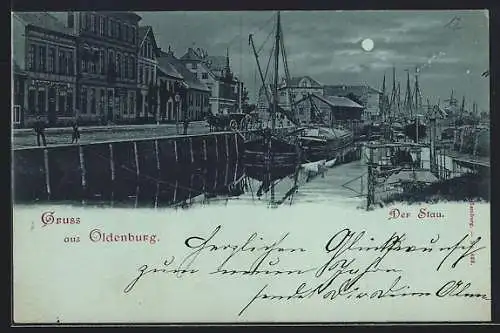 Gruss
aus Oldenburg.
Der Stau.
Herzlichen Glückwunsch
zum neuen Jahre
sendet Dir Deine